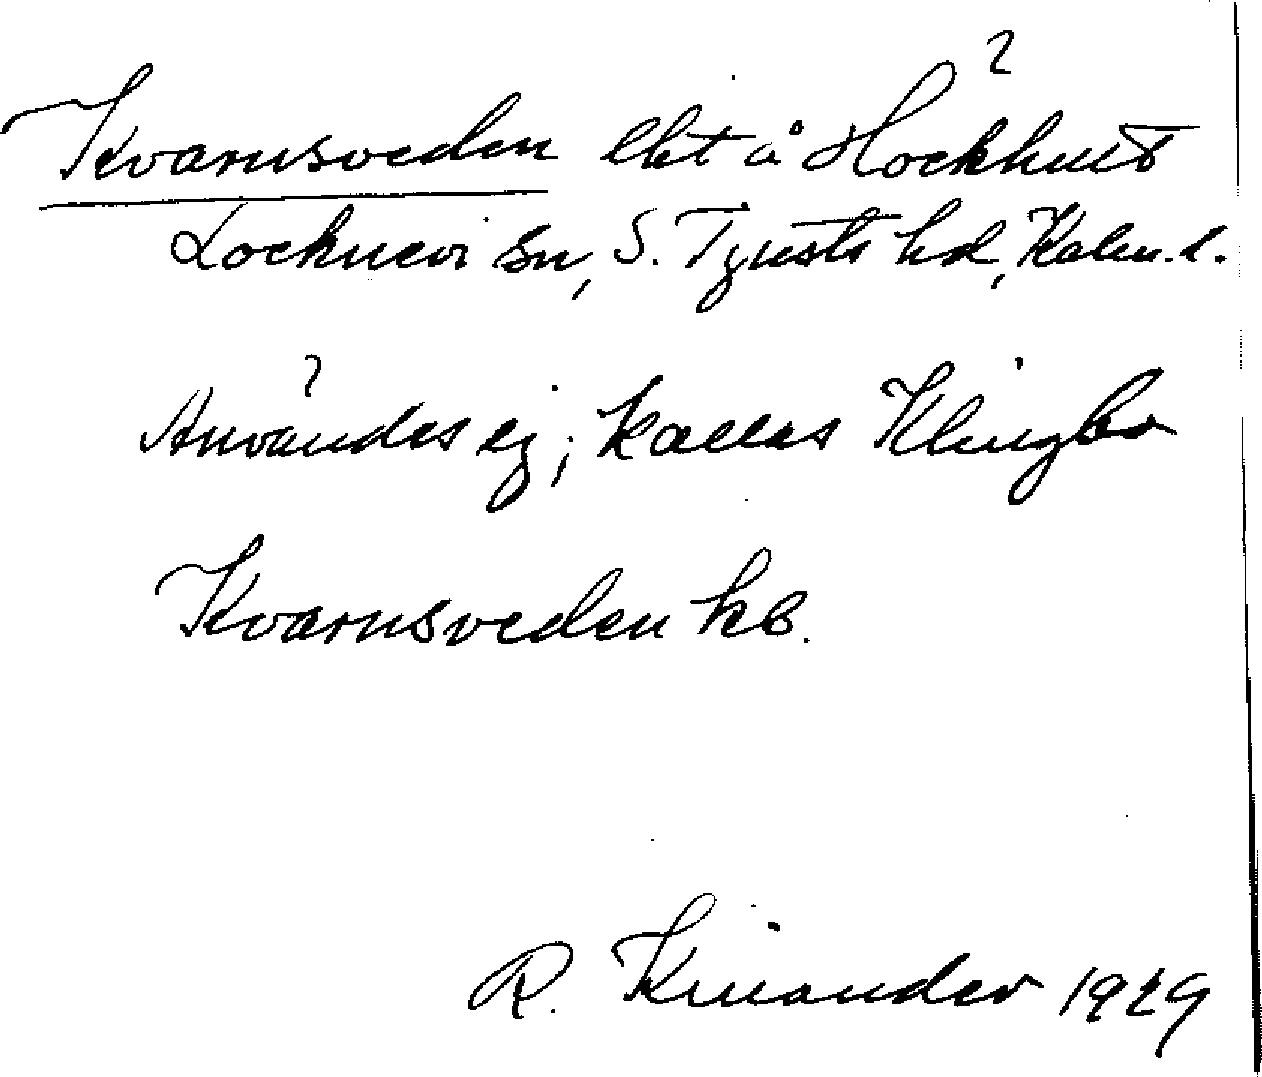 Kvarnsveden lht å Höckhult
Locknevi sn, S. Tjusts hd, Kalm. l.
Användes ej; kallas Klingbo
Kvarnsveden kb.
R. Kinander 1929